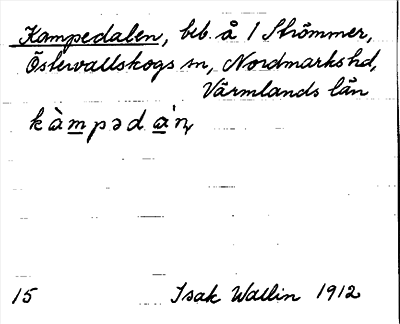 Kampedalen, beb. å 1 Strömmer,
Östervallskogs sn, Nordmarks hd,
Värmlands län
kàmpədá'n,
15 Isak Wallin 1912